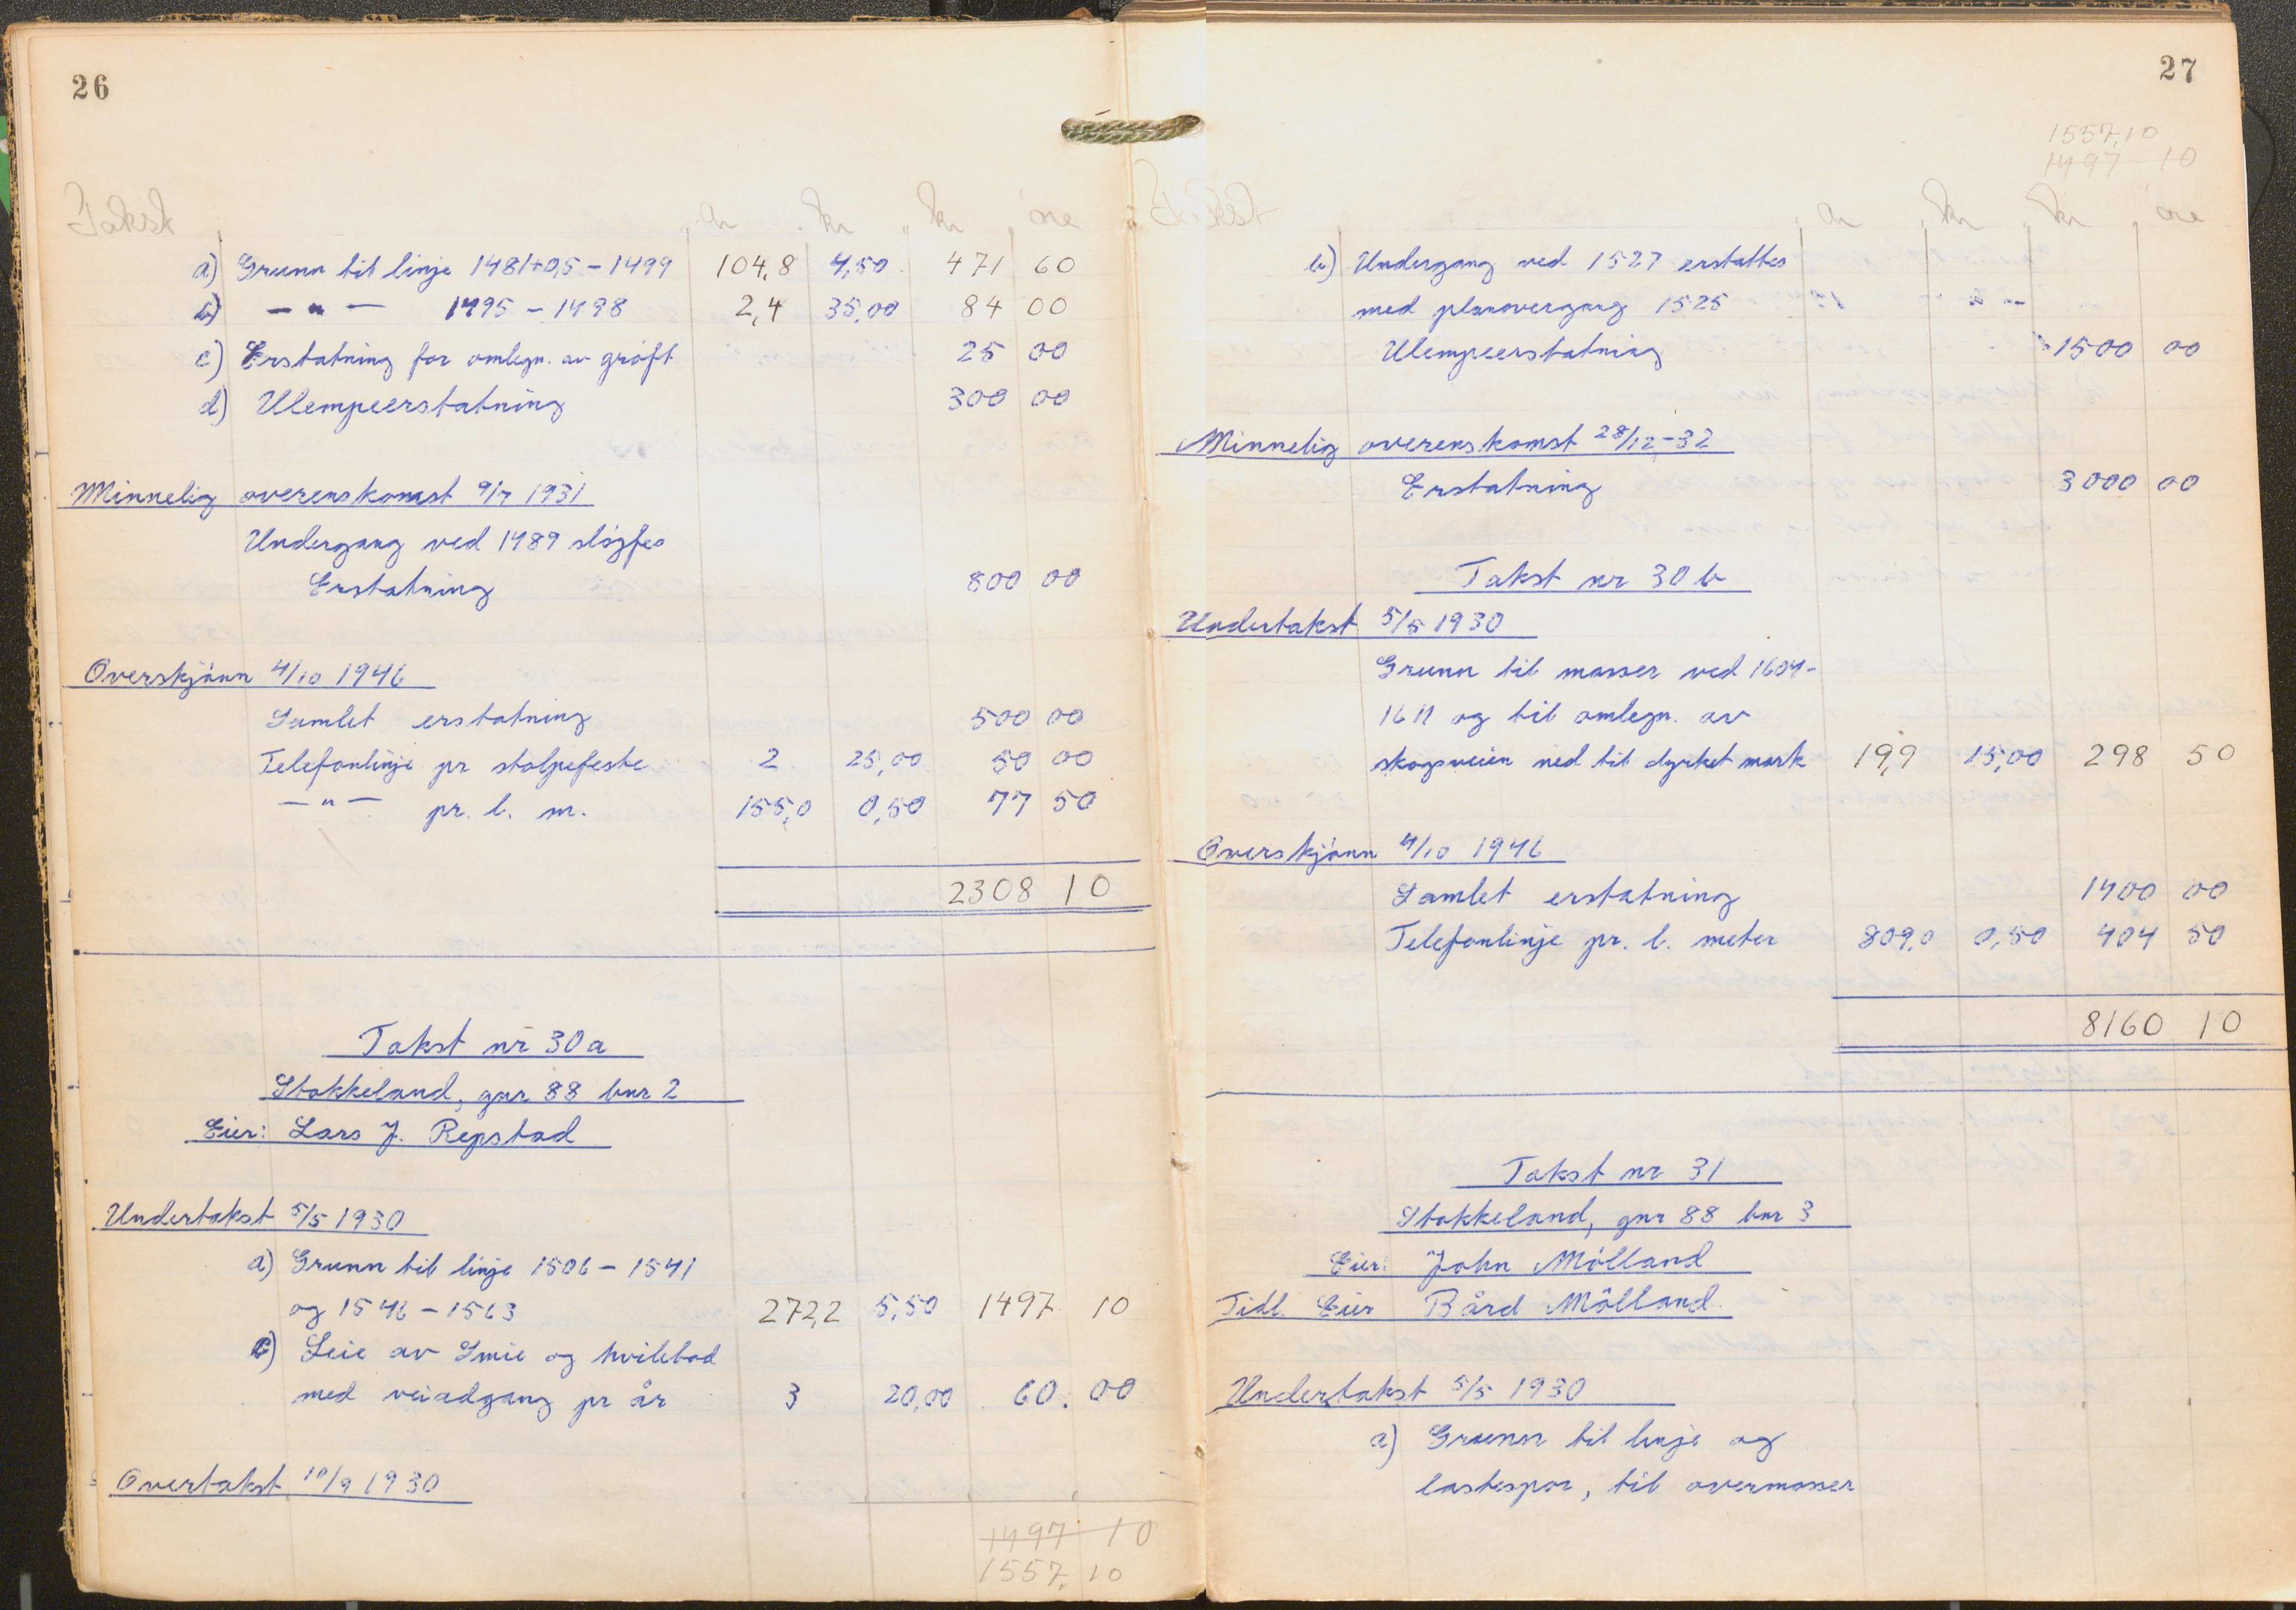 26
Takst ar kr kr øre
a) Grunn til linje 1481+0,5 - 1499 104,8 4,50 471 60
b) - " - 1495 - 1498 2,4 35,00 84 00
c) Erstatning for omlegn. av grøft 25 00
d) Ulempeerstatning 300 00
Minnelig overenskomst 9/7 1931
Undergang ved 1489 sløyfes
Erstatning 800 00
Overskjønn 4/10 1946
Samlet erstatning 500 00
Telefonlinje pr stolpefeste 2 25,00 50 00
- " - pr. l. m. 155,0 0,50 77 50
2308 10
Takst nr 30 a
Stokkeland, gnr 88 bnr 2
Eier: Lars J. Repstad
Undertakst 5/5 1930
a) Grunn til linje 1506 - 1541
og 1546 - 1563 272,2 5,50 1497 10
c) Leie av Smie og hvilebod
med veiadgang pr år 3 20,00 60. 00
Overtakst 10/9 1930
1497 10
1557,10
27
1557,10
1497 10
Takst ar kr kr øre
b) Undergang ved 1527 erstattes
med planovergang 1525
Ulempeerstatning 1500 00
Minnelig overenskomst 28/12-32
Erstatning 3000 00
Takst nr 30 b
Undertakst 5/5 1930
Grunn til masser ved 1604-
1611 og til omlegn. av
skogsveien ned til dyrket mark 19,9 15,00 298 50
Overskjønn 4/10 1946
Samlet erstatning 1400 00
Telefonlinje pr. l. meter 809,0 0,50 404 50
8160 10
Takst nr 31
Stokkeland, gnr 88 bnr 3
Eier: John Mølland
Tidl. Eier Bård Mølland
Undertakst 5/5 1930
a) Grunn til linje og
lastespor, til overmasser